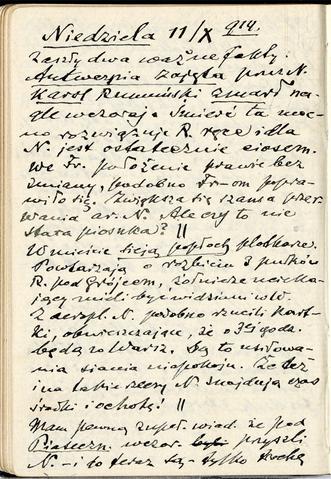 Niedziela 11/X 914.
Zaszły dwa ważne fakty.
Antwerpia zajęta przez N.
Karol Rumuński zmarł na-
gle wczoraj. Śmierć ta moc-
no rozwiązuje R. ręce i dla
N. jest ostatecznie ciosem.
we Fr. położenie prawie bez
zmiany, podobno Fr-om popra-
wiło się. Zwiększa się szansa przer-
wania ar. N. Ale czy to nie
stara piosnka? ||
W mieście sieją popłoch plotkarze.
Powtarzają o rozbiciu 3 pułków
R. pod Grójcem, żołnierze ucieka-
jący mieli być widziani w W.
Z aeropl. N. podobno rzucili kart-
ki, obwieszczające, że o godz.
będą w Warsz. Są to usiłowa-
nia siania niepokoju. Że też
i na takie rzeczy N. znajdują czas
środki i ochotę! ||
Mam pewną zupeł. wiad. że pod
Piaseczn. wczor. przyszli
N. – i to teraz są tylko trochę